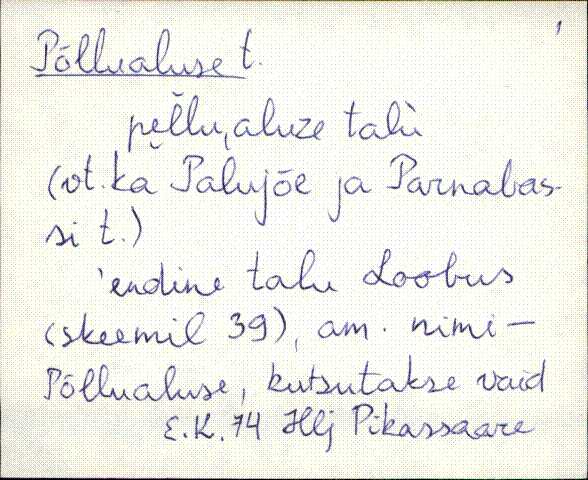 1
Põllualuse t.
pe̮l̆lu,aluze talù
(vt. ka Palujõe ja Parnabas-
si t.)
'endine talu Loobus
(skeemil 39), am. nimi –
Põllualuse, kutsutakse vaid
E.K. 74 Hlj Pikassaare